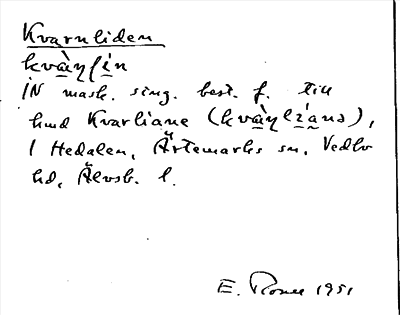 Kvarnliden
kvàɳlịn
IN mask. sing. best. f. till
hmd Kvarliane (kvàɳlíanə),
i Hedalen, Ärtemarks sn, Vedbo
hd, Älvsb. l.
E. 1951